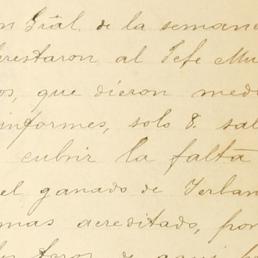 n Gral. de la semana
restaron al Jefe Mu
os, que dieron med
informes, solo 8. sal
cubrir la falta
el ganado de Terban
mas acreditado, por
de aqui